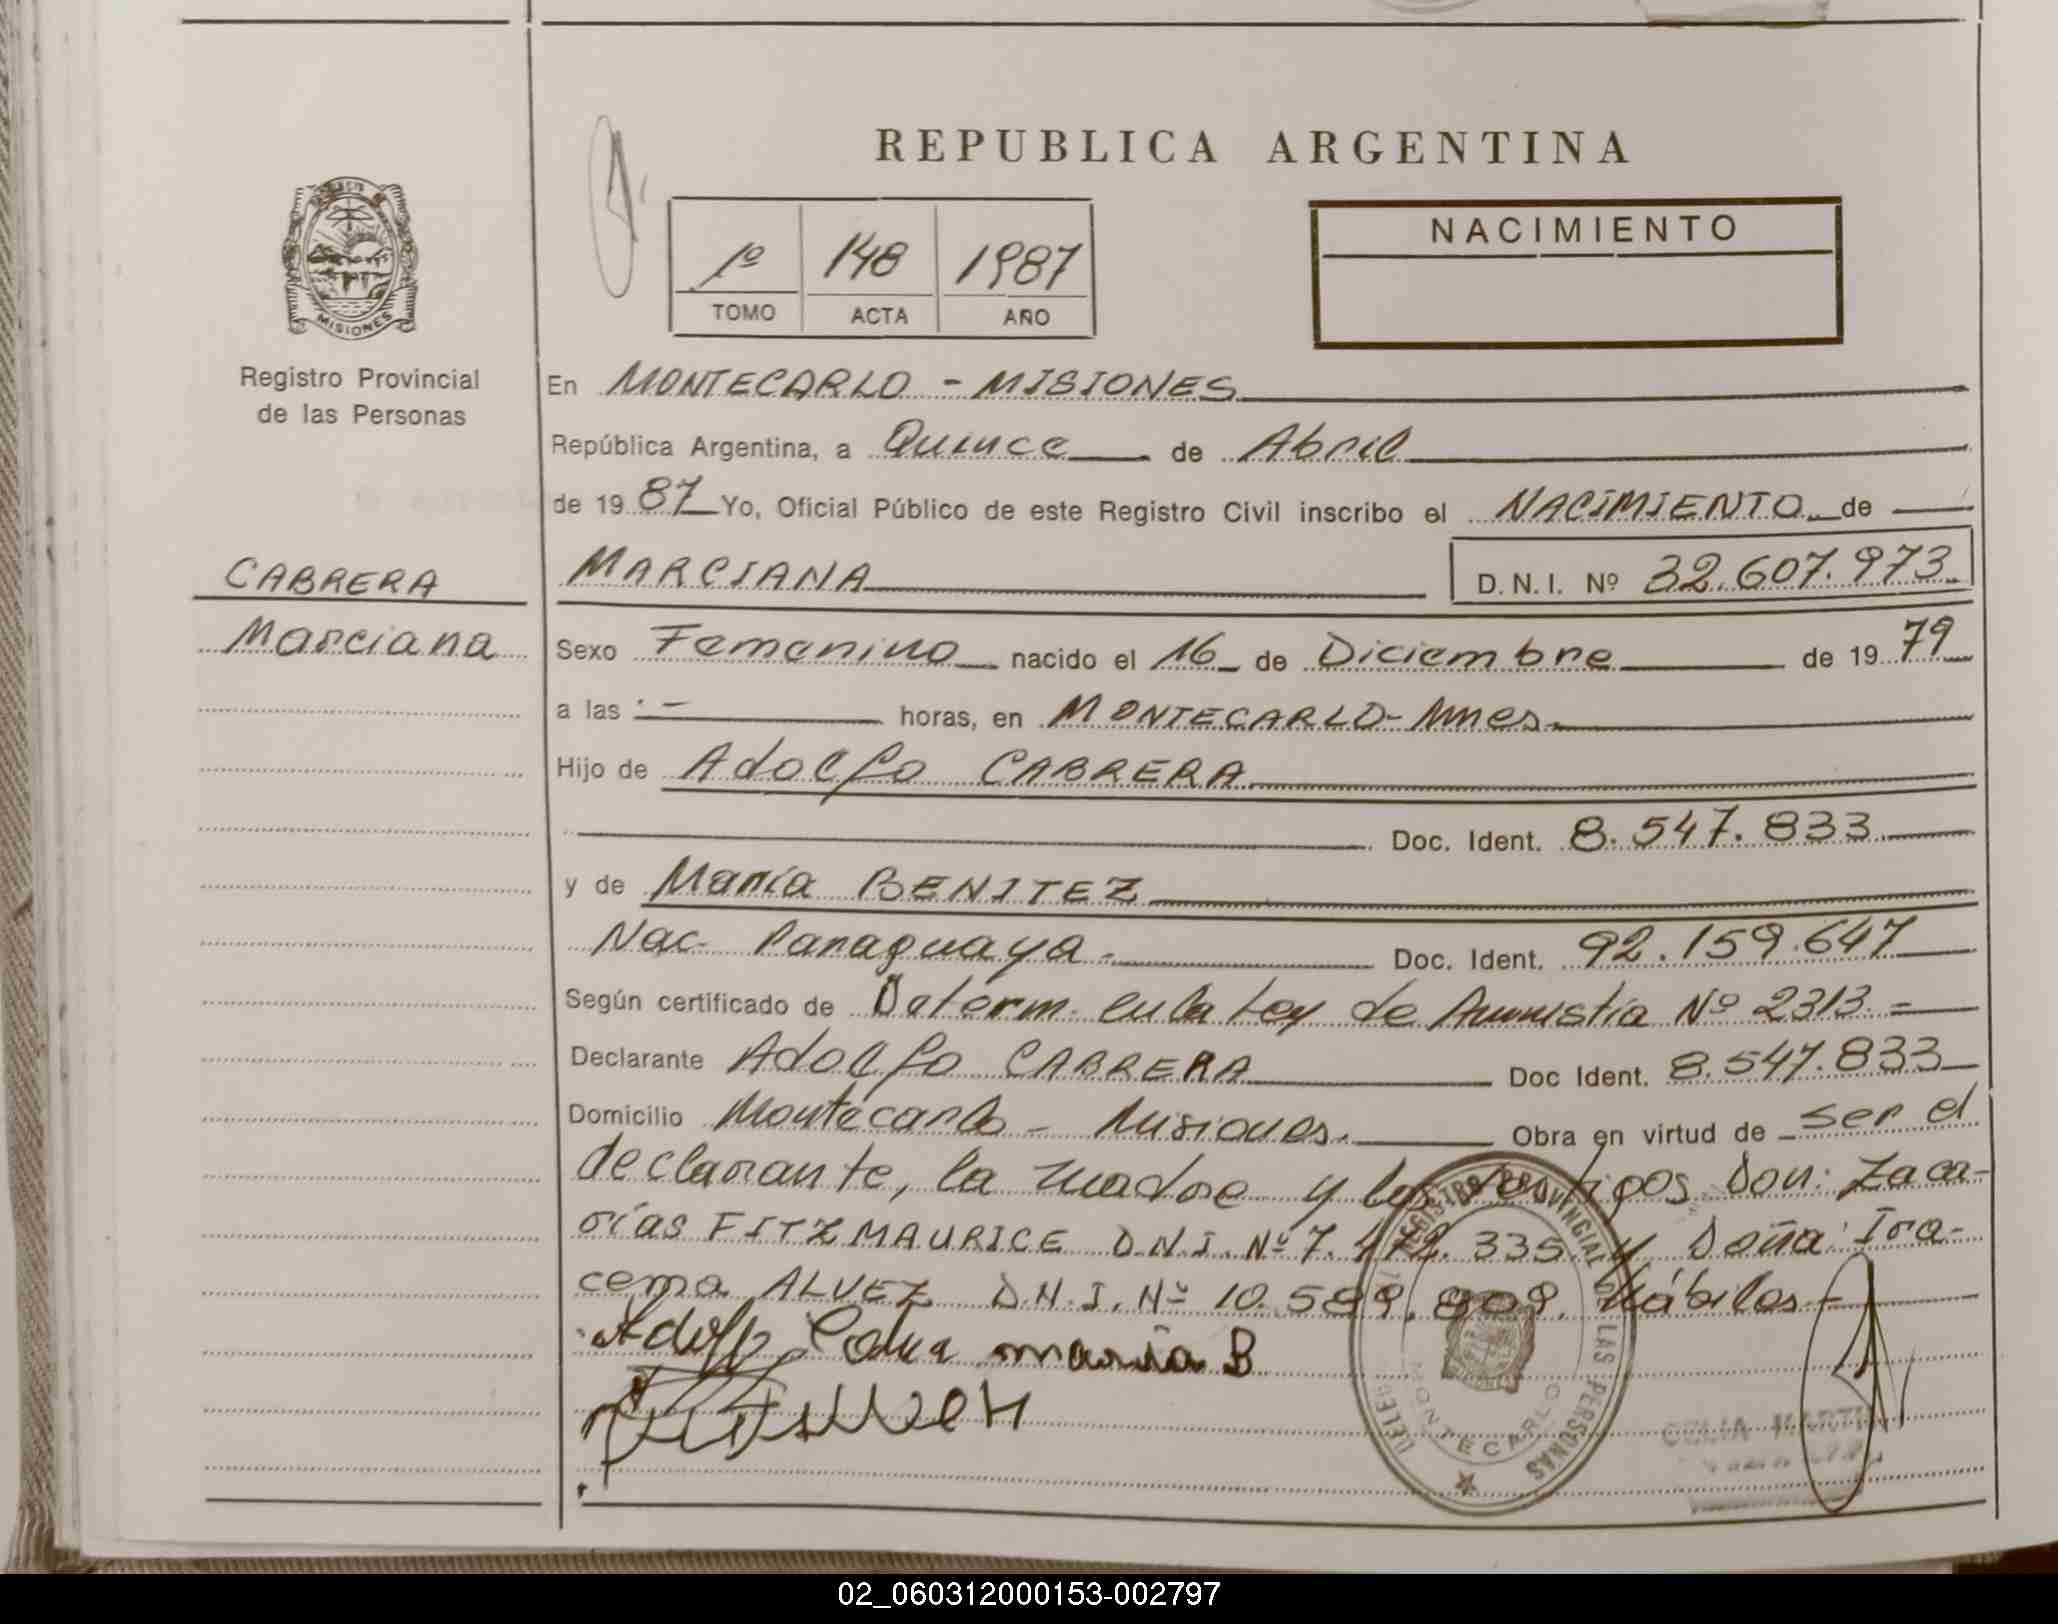 REPUBLICA ARGENTINA
NACIMIENTO
1º 148 1987
TOMO ACTA AÑO
MISIONES
Registro Provincial
de las Personas
CABRERA
Marciana
En MONTECARLO - MISIONES
República Argentina, a Quince de Abril
de 1987 Yo, Oficial Público de este Registro Civil inscribo el NACIMIENTO de
MARCIANA D.N.I. Nº 32.607.973
Sexo Femenino nacido el 16 de Diciembre de 1979
a las - horas, en MONTECARLO - Mnes
Hijo de Adolfo CABRERA
Doc. Ident. 8.547.833
y de María BENITEZ
Nac. Paraguaya. Doc. Ident. 92.159.647
Según certificado de Determ. en la Ley de Amnistía Nº 2313.=
Declarante Adolfo CABRERA Doc Ident. 8.547.833
Domicilio Montecarlo - Misiones. Obra en virtud de ser el
declarante, la madre y los testigos Don: Zaca-
rías FITZMAURICE D.N.I. Nº 7. 335 y Doña: Ira-
cema ALVEZ D.N.I. Nº 10. Hábiles -
Adolfo maria B
REGISTRO PROVINCIAL DE LAS PERSONAS
MONTECARLO
CELIA
02_060312000153-002797